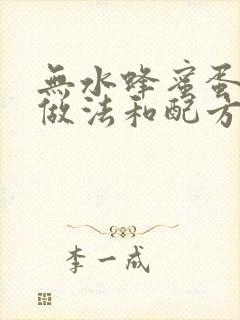 無水蜂蜜蛋
做法和配方
李一成